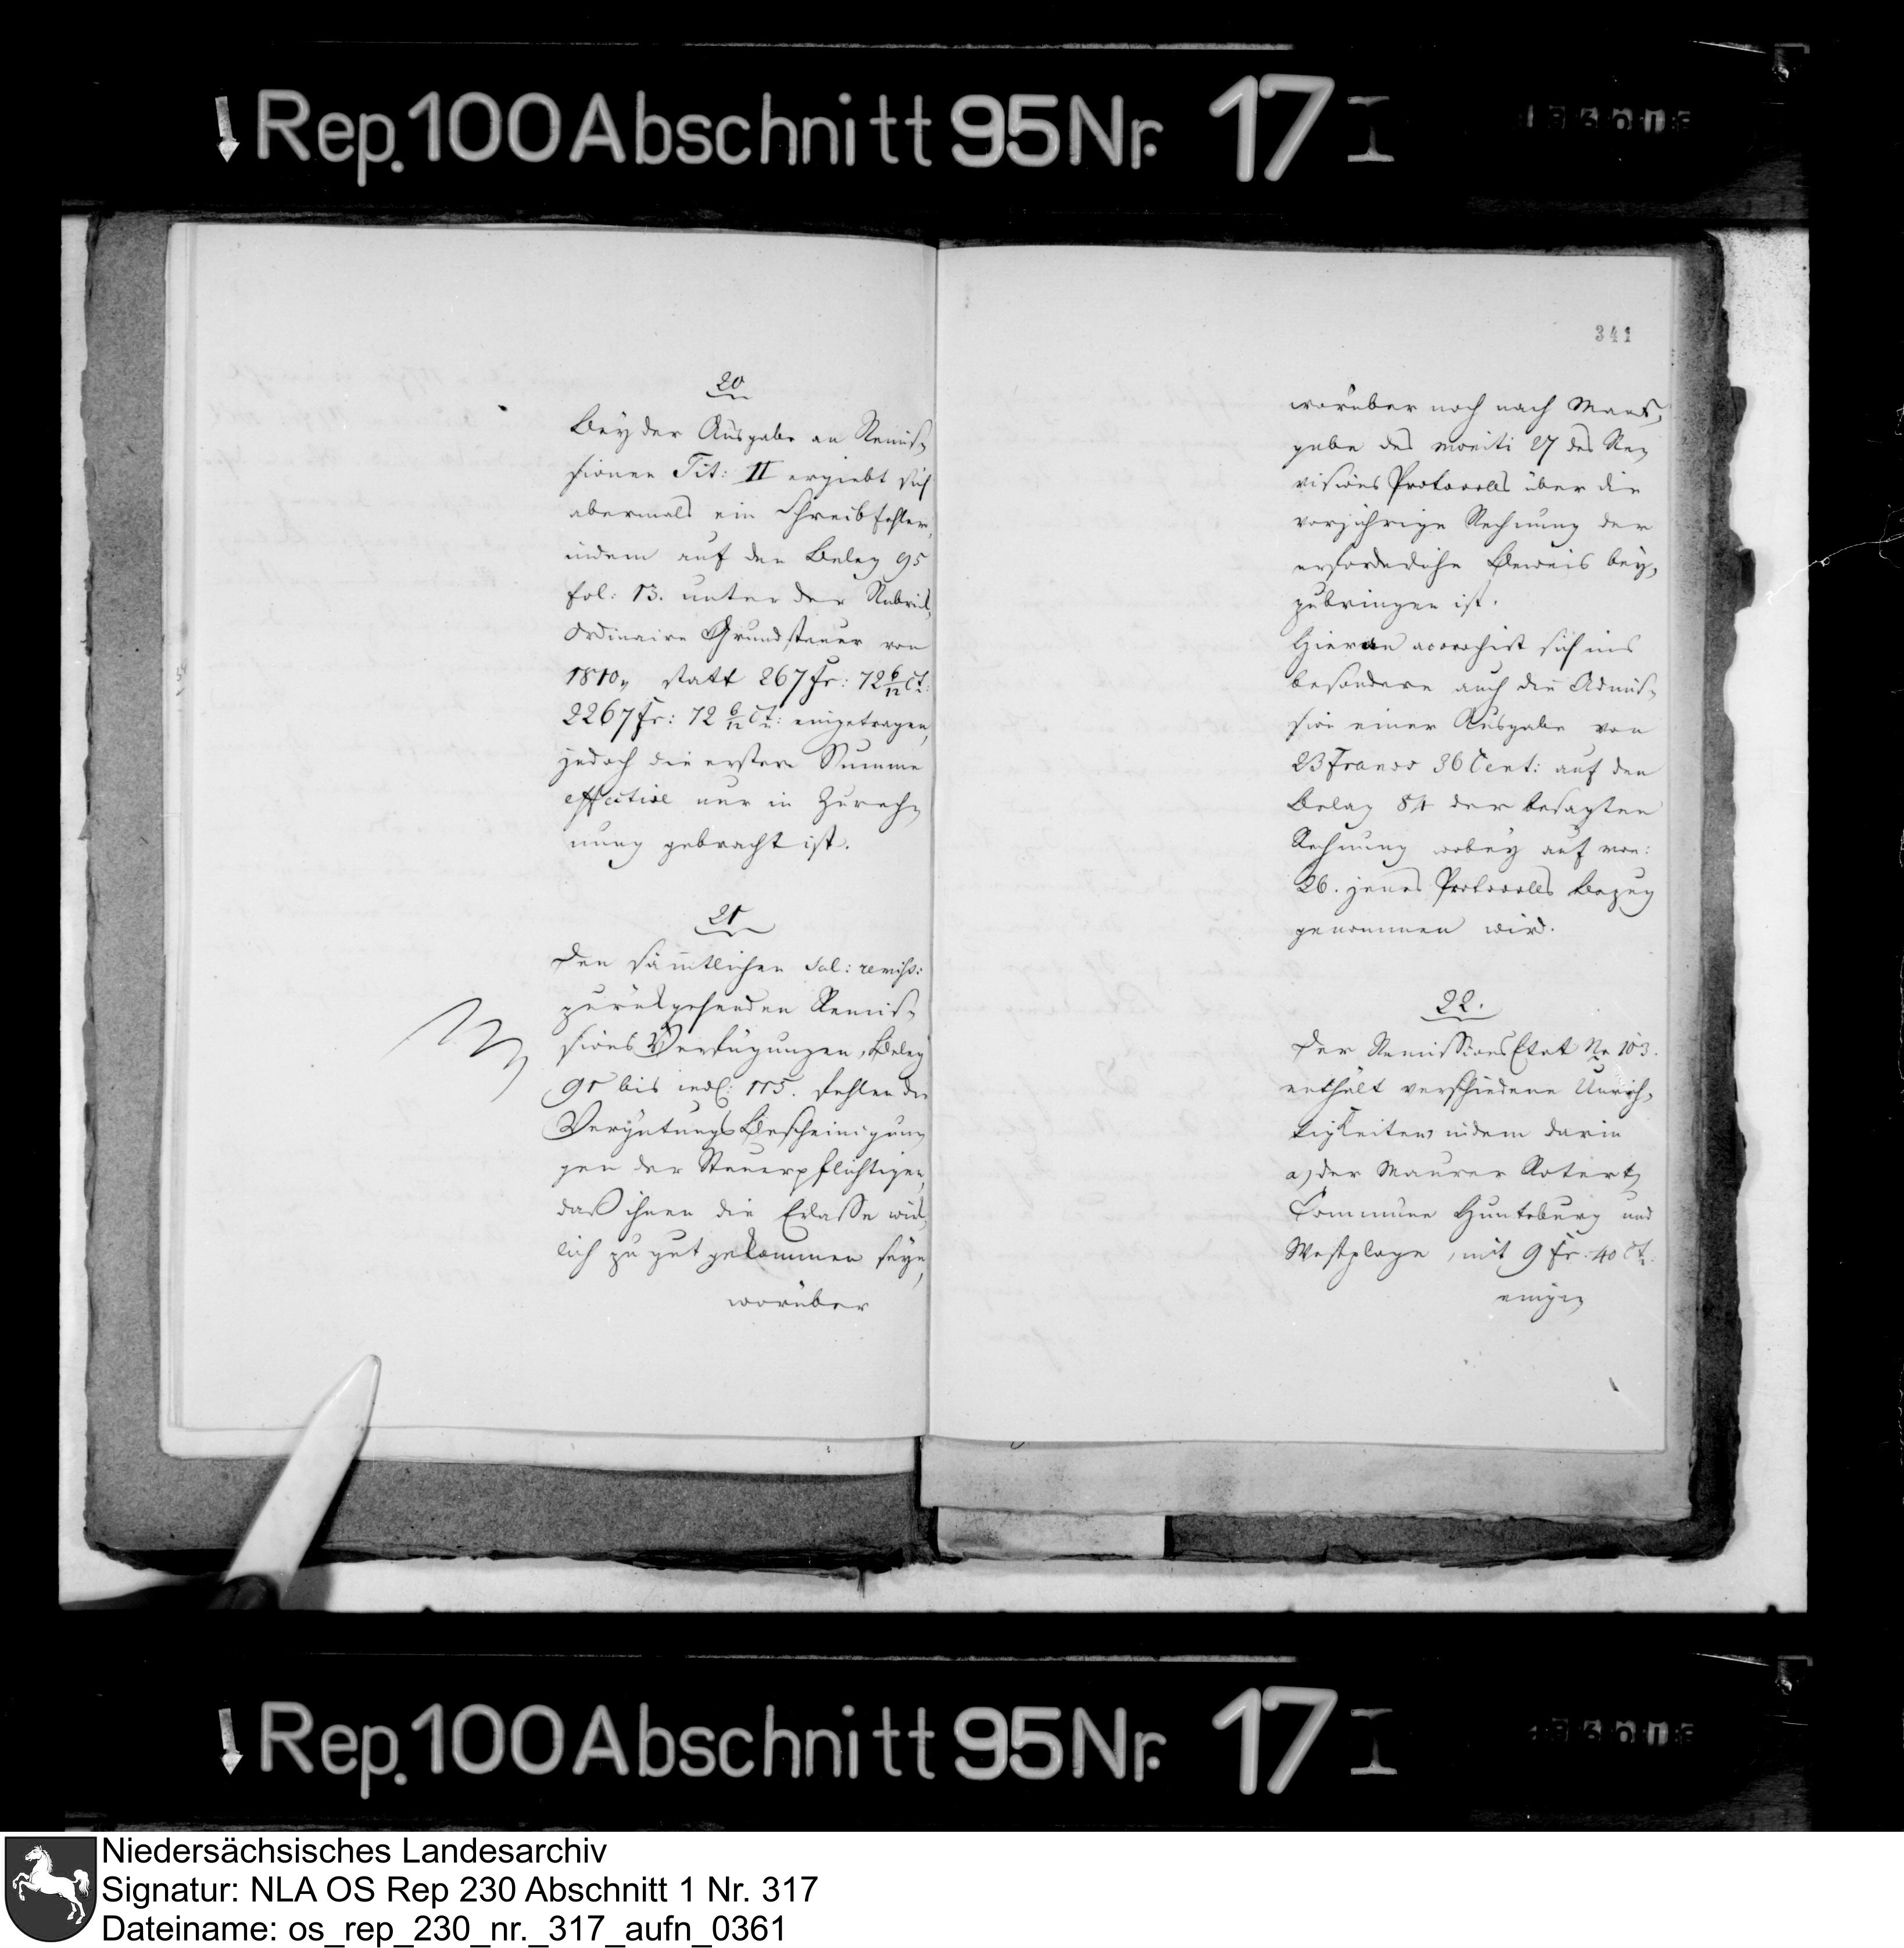 Rep. 100 Abschnitt 95 Nr. 17 I
20
Bey der Ausgabe an Remis-
sionen Tit: II ergiebt sich
abermals ein Schreibfehler,
indem auf den Beleg 95
fol: 13. unter der Rubrik,
Ordinaire Grundsteuer von
1810, statt 267 fr: 72 6/12 Ct:
2267 fr: 72 6/12 Ct: eingetragen,
jedoch die erstere Summe
effective nur in Zurech-
nung gebracht ist.
21
Den sämtlichen sal: remiss:
zurückgehenden Remis-
sions Verfügungen, Beleg
91 bis incl: 115. fehlen die
Vergütungs Bescheinigung
gen der Steuerpflichtigen,
daß ihnen die Erlasse wirk-
lich zu gut gekommen seyn,
worüber
341
worüber noch nach Maas-
gabe des moniti 27 des Re-
visions Protocolls über die
vorjährige Rechnung der
erforderliche Beweis bey-
zubringen ist.
Hieran accrochirt sich ins
besondere auch die Admis-
sion einer Ausgabe von
23 Francs 36 Cent: auf den
Beleg 84 der besagten
Rechnung wobey auf mon:
26. jenes Protocolls Bezug
genommen wird.
22.
Der Remissions Etat No 103.
enthält verschiedene Unrich-
tigkeiten, indem darin
a) der Maurer Rotert,
Commune Hunteburg und
Westplage, mit 9 fr. 40 Ct.
einge-
Rep. 100 Abschnitt 95 Nr. 17 I
Niedersächsisches Landesarchiv
Signatur: NLA OS Rep 230 Abschnitt 1 Nr. 317
Dateiname: os_rep_230_nr._317_aufn_0361